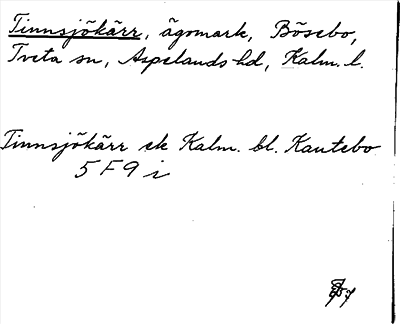 Tinnsjökärr, ägomark, Bösebo,
Tveta sn, Aspelands hd, Kalm. l.
Tinnsjökärr ek Kalm. bl. Kautebo
5 F 9 i